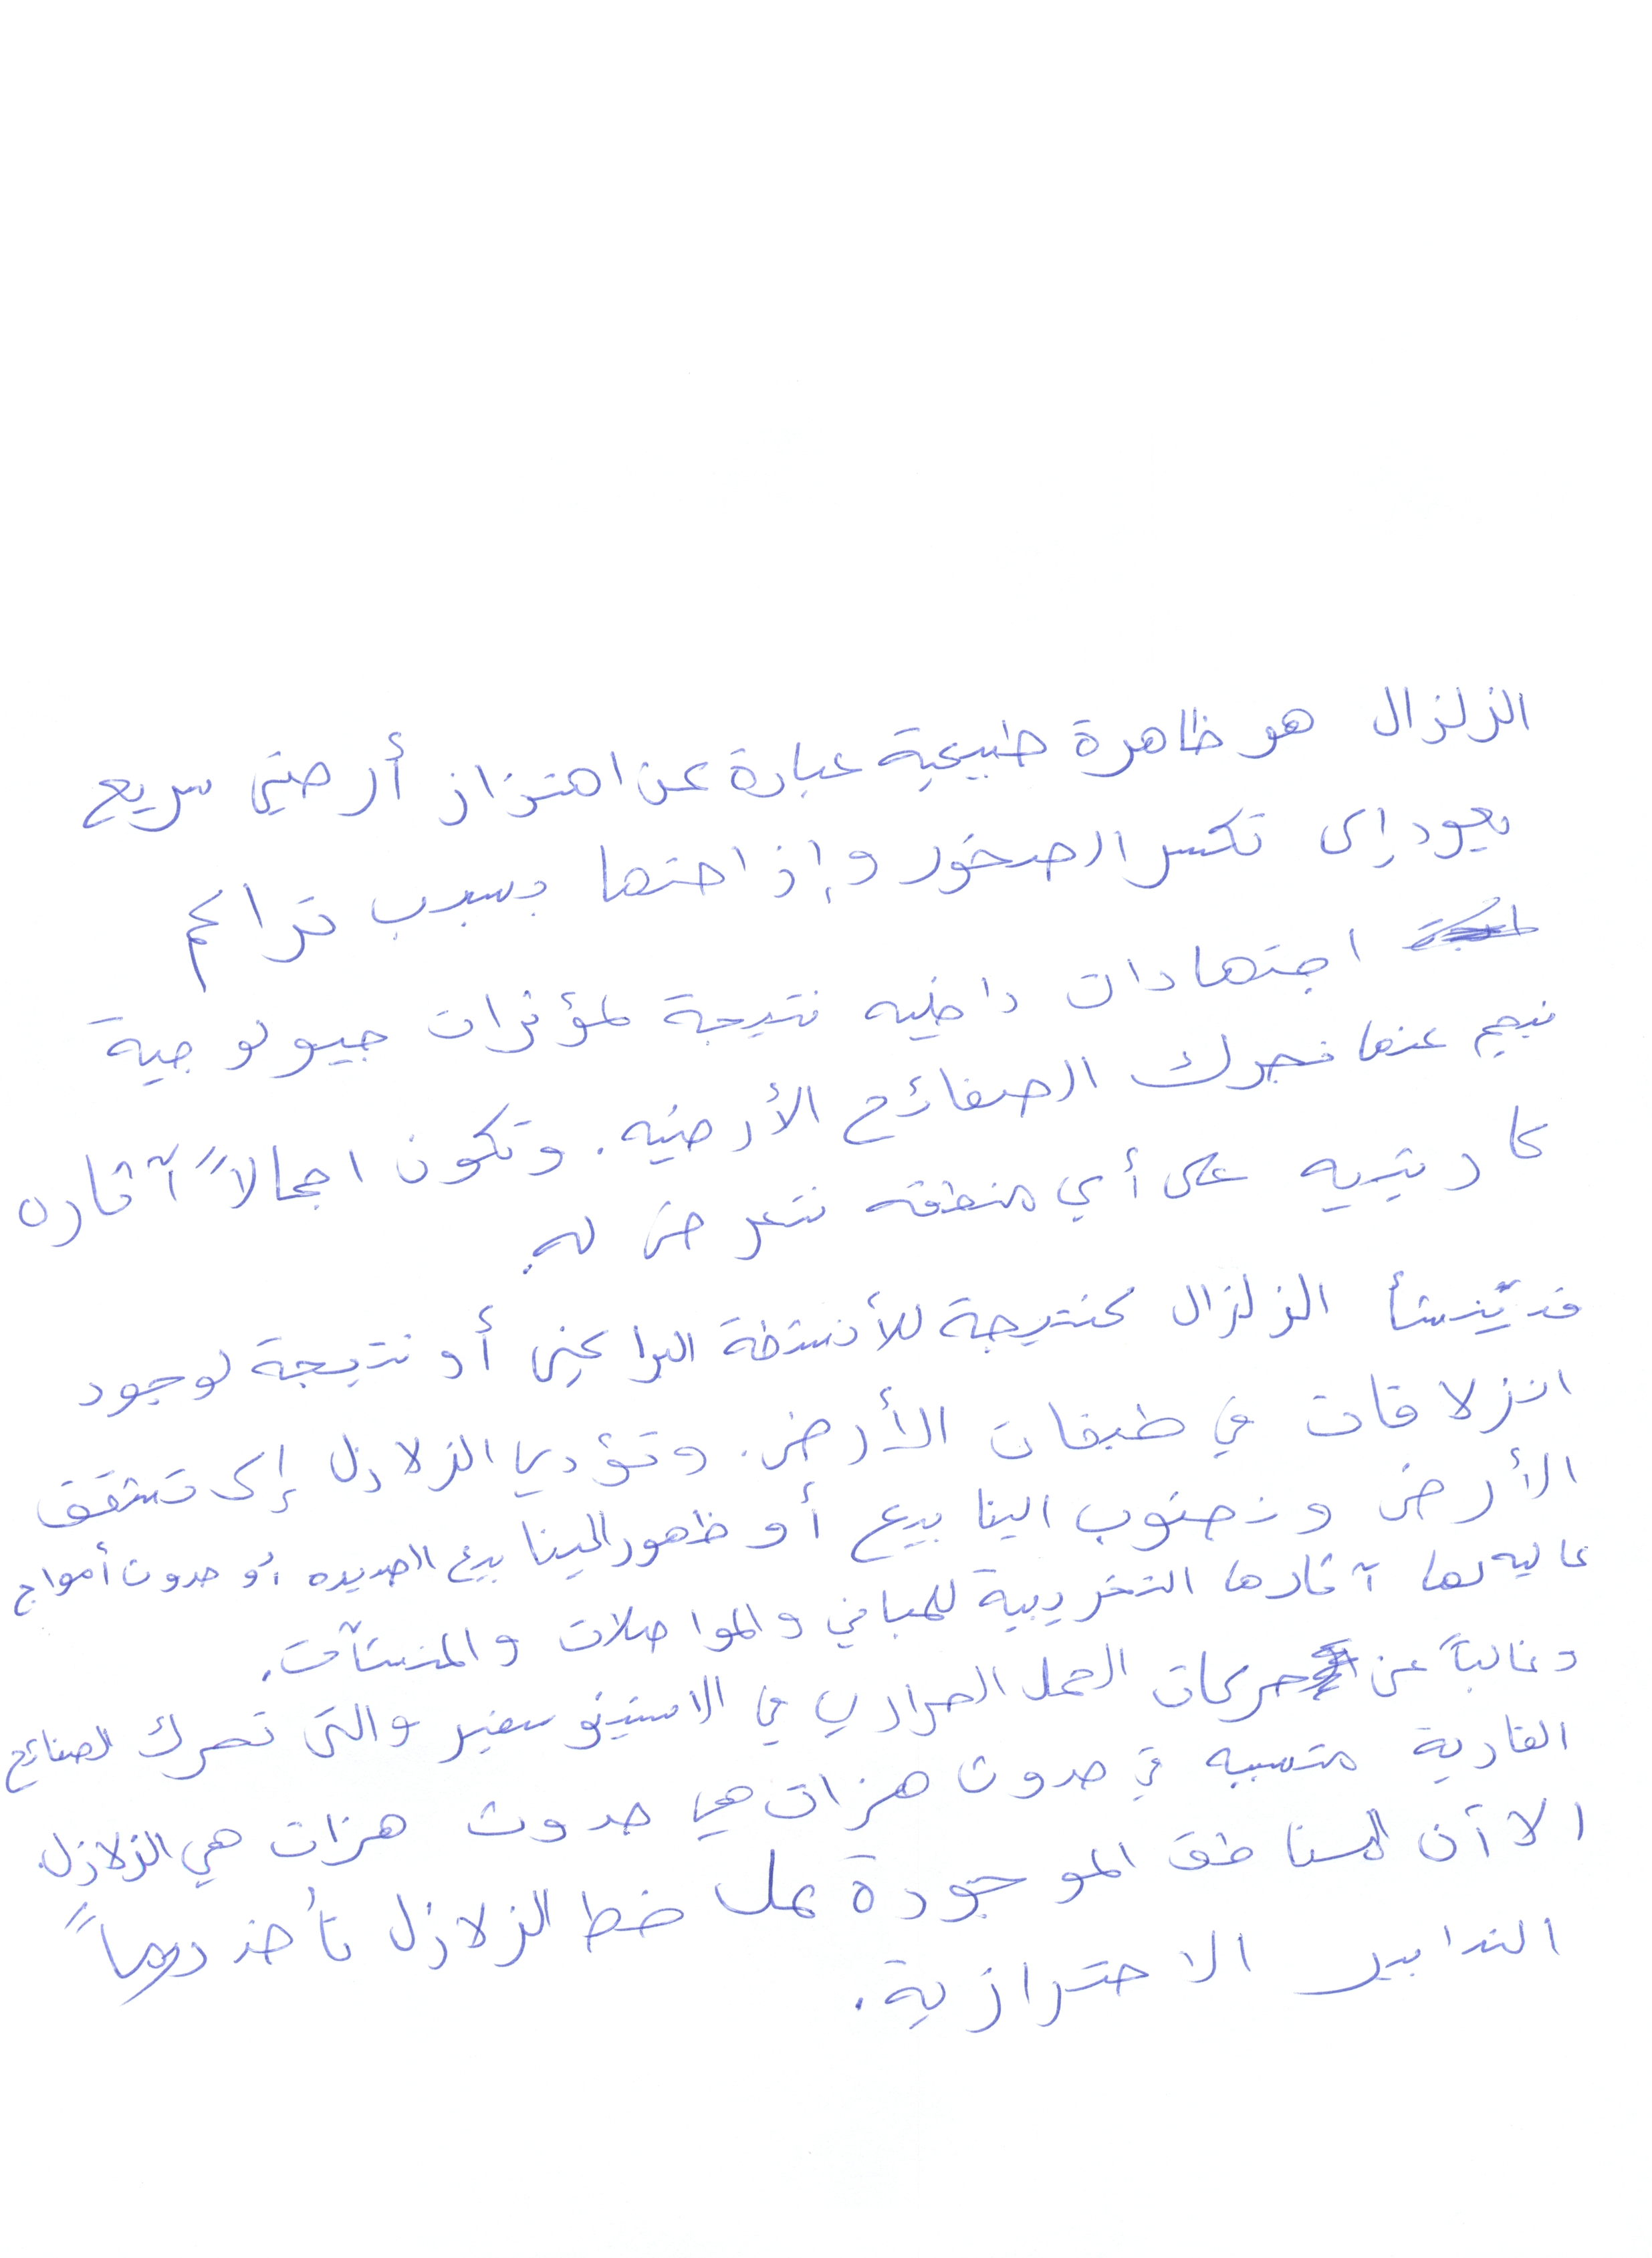 الزلزال هو ظاهرة طبيعية عبارة عن اهتزاز أرضي سريع
يعود إلى تكسر الصخور وإزاحتها بسبب تراكم
اجتهادات داخليه نتيجة لمؤثرات جيولوجية
ينجم عنها تحرك الصفائح الأرضيه. وتكون اجمالاً آثاره
كارثيه على أي منطقه تتعرض له.
قد ينشأ الزلزال كنتيجة للأنشطة البراكين أو نتيجة لوجود
انزلاقات في طبقات الأرض. وتؤدي الزلازل إلى تشقق
الأرض ونضوب الينابيع أو ظهور الينابيع الجديده أو حدوث أمواج
عاليه لها آثارها التخريبية للمباني والمواصلات والمنشآت.
وغالباً عن حركات الحمل الحراري في الاستينوسفير والتي تحرك الصفائح
القارية متسببه في حدوث هزات هي حدوث هزات هي الزلازل.
الا أن المناطق الموجودة على خط الزلازل تأخذ دوماً
التدابير الاحترازية.